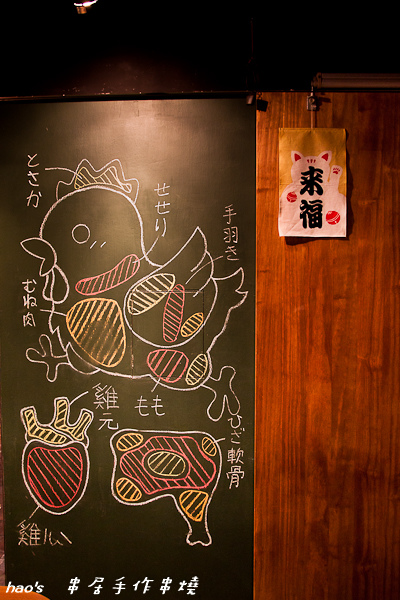 とさか
せせり
手羽き
むね肉
来福
雞元
もも
ひざ軟骨
雞心
hao's 串居手作串燒